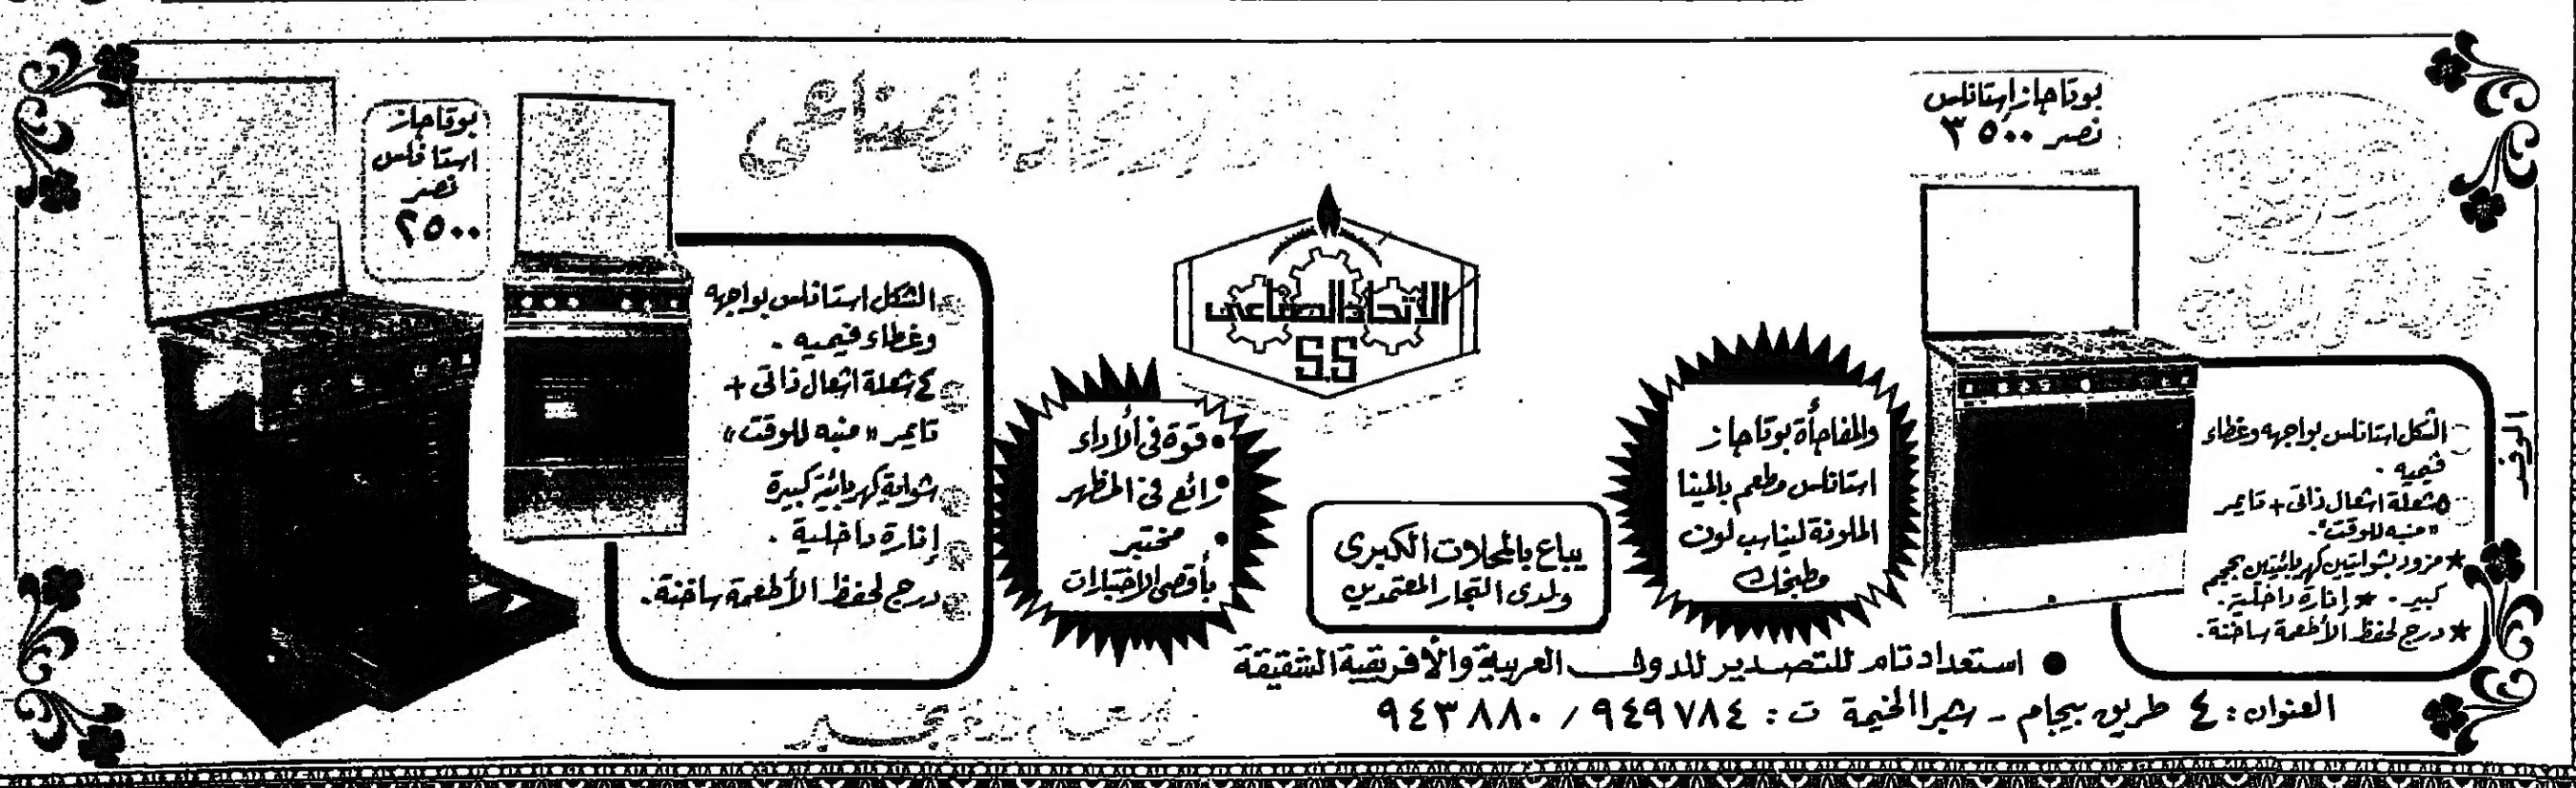 بوتاجاز إستانلس
نصر ٣٥٠٠
الشكل استانلس بواجهه وغطاء
فيميه .
٥ شعلة اشعال ذاتى + تايمر
"منبه للوقت".
* مزود بشوايتين كهربائيتين بحجم
كبير . * إنارة داخلية .
* درج لحفظ الأطعمة ساخنة .
والمفاجأة بوتاجاز
استانلس مطعم بالمينا
الملونة ليناسب لون
مطبخك
الصناعى
الاتحاد الصناعى
S.S
يباع بالمحلات الكبرى
ولدى التجار المعتمدين
• قوة فى الأداء
• رائع فى المظهر
• مختبر
بأقصى الاختبارات
بوتاجاز
استانلس
نصر
٢٥٠٠
الشكل استانلس بواجهه
وغطاء فيميه .
٤ شعلة اشعال ذاتى +
تايمر "منبه للوقت"
شواية كهربائية كبيرة
إنارة داخلية .
درج لحفظ الأطعمة ساخنة .
• استعداد تام للتصدير للدول العربية والأفريقية الشقيقة
العنوان : ٤ طريق بيجام - شبرا الخيمة ت : ٩٤٩٧٨٤ / ٩٤٣٨٨٠